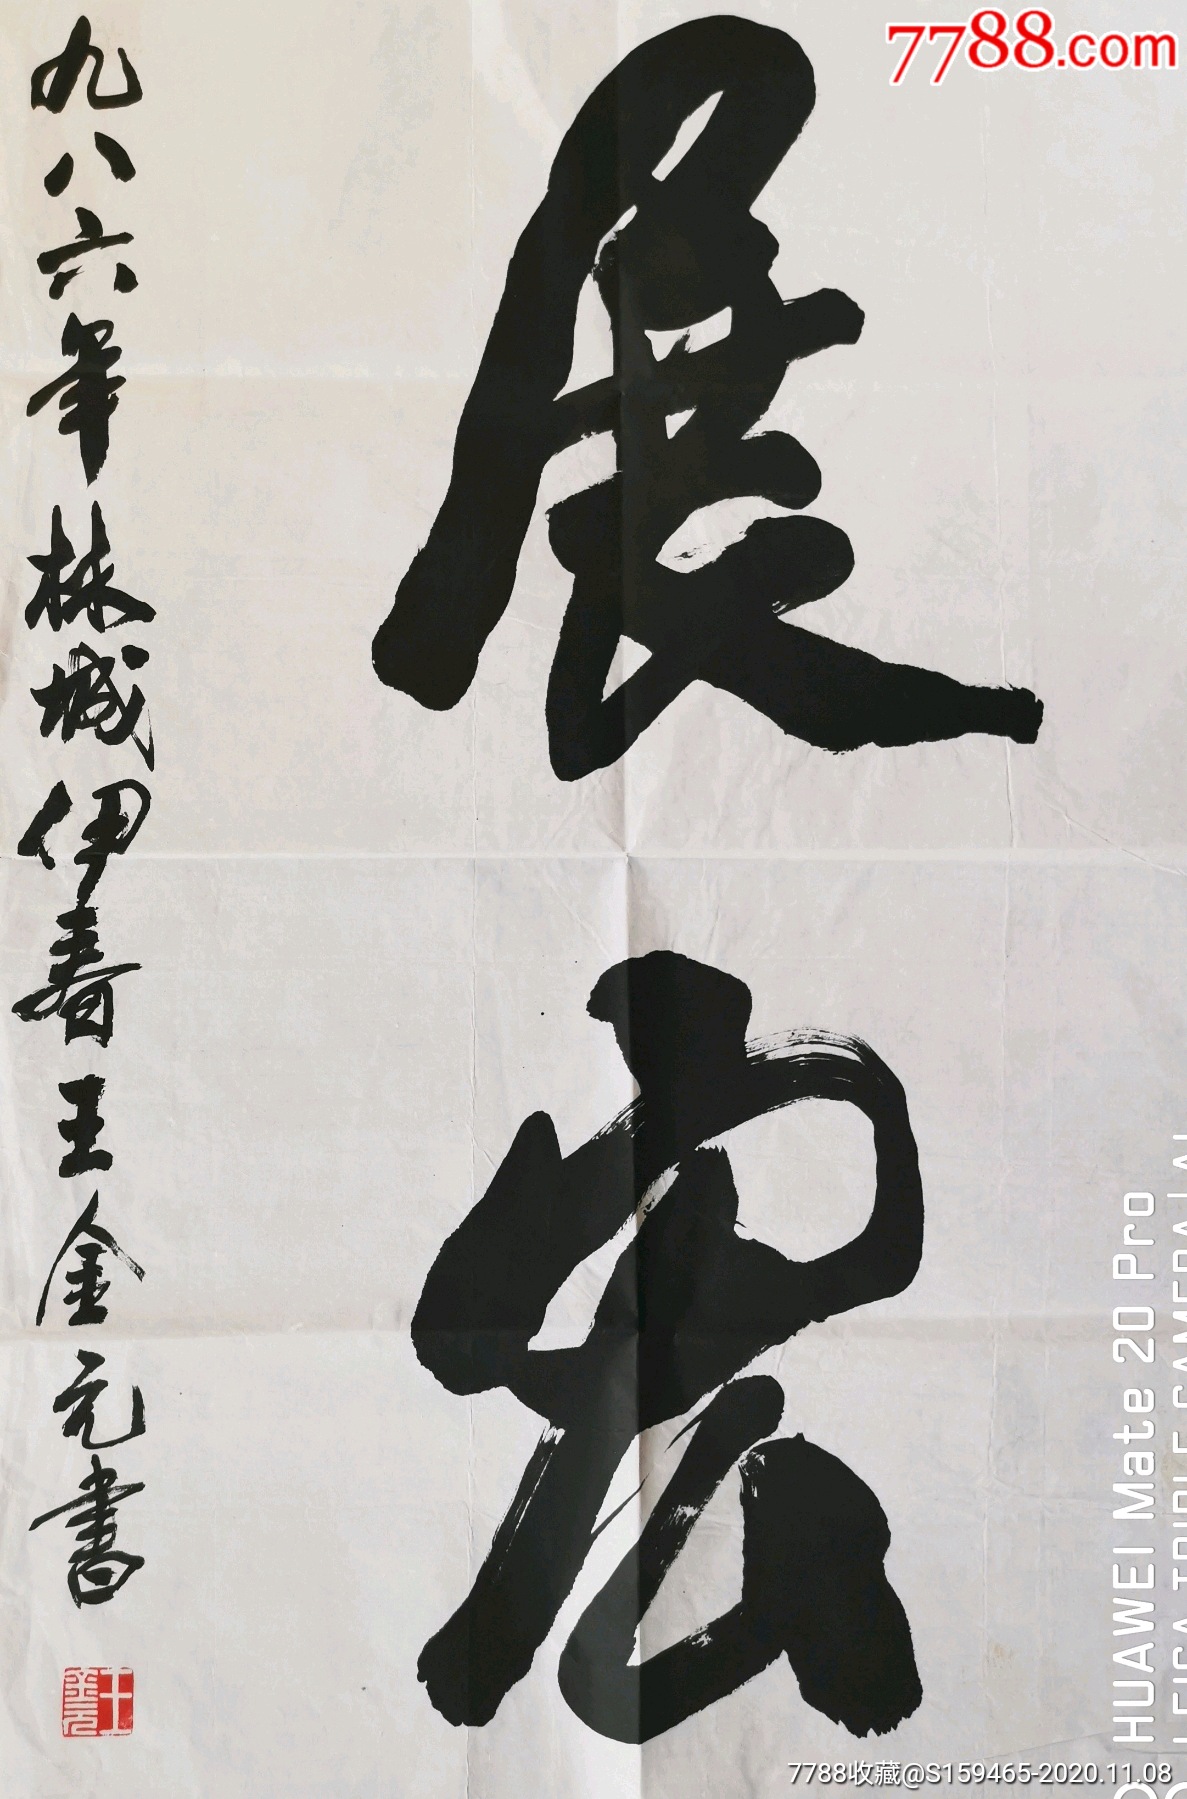 7788.com
展宏
九八六年林城伊春王金元書
王金元
HUAWEI Mate 20 Pro
LEICA TRIPLE CAMERA | AI
7788收藏@S159465-2020.11.08